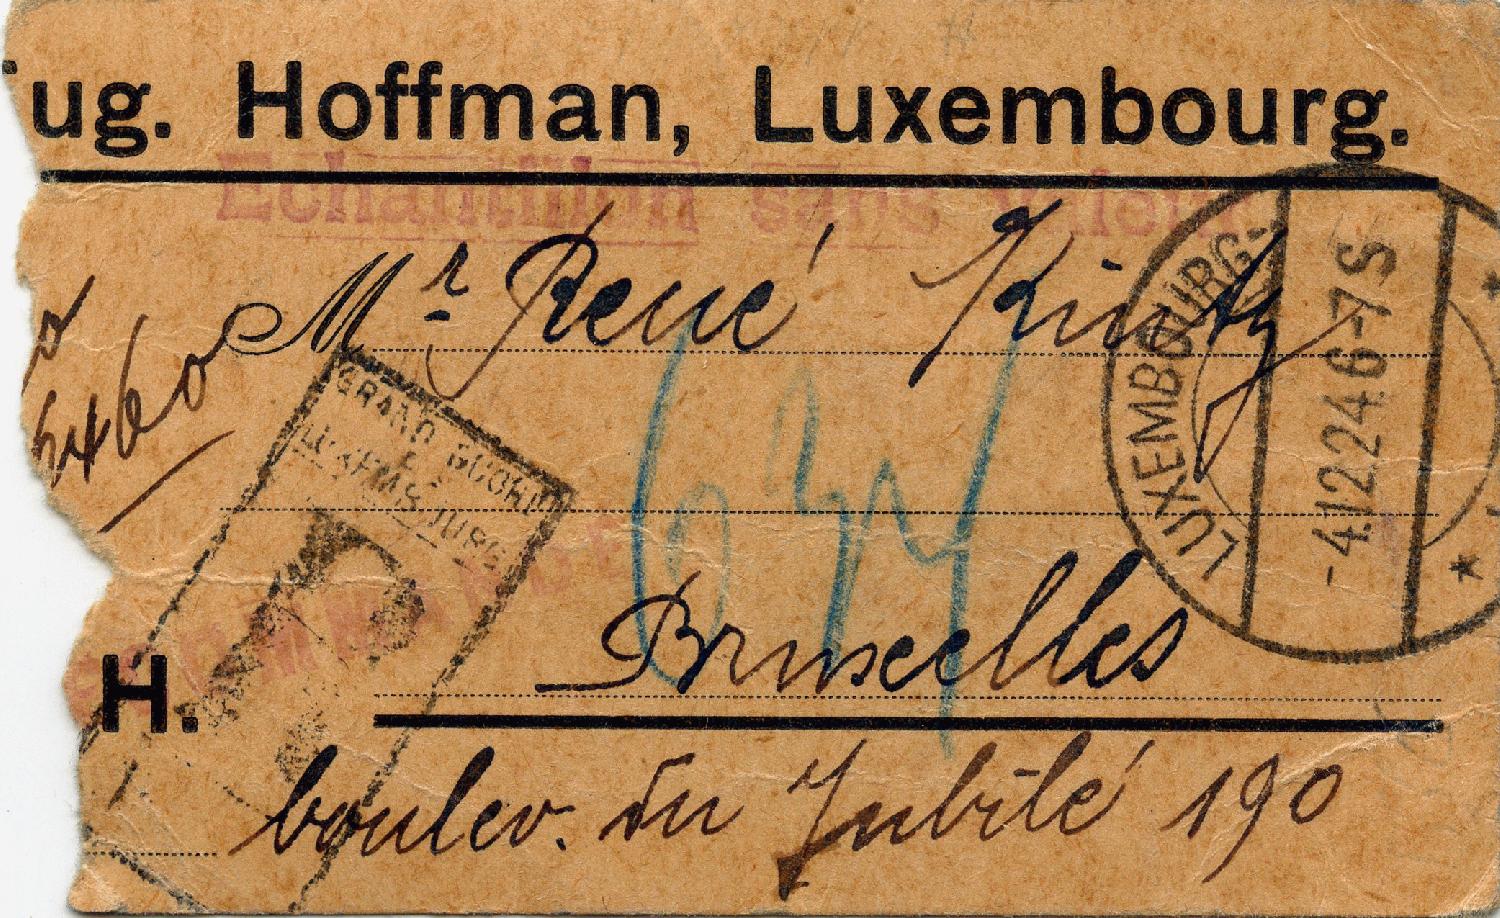 ug. Hoffman, Luxembourg.
Echantillon sans valeur
Mr René Kintz
LUXEMBOURG-
-4.12.24.6-7S
GRAND DUCHE
LUXEMBOURG
Bruxelles
H.
boulev. du Jubilé 190